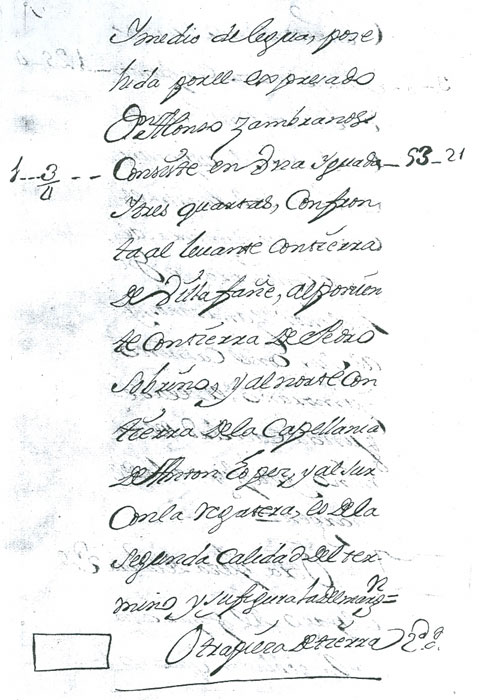 Imedio de legua, pose
hida por el expresado
Dn Alonso Zambranos,
1 3/4 Consiste en Vna Yguada 53 21
Itres quartas, Confron
ta al levante Contierra
de Villafañe, al ponien
te Contierra de Pedro
Sobrino, y al norte Con
tierra de la Capellania
de Anton Lopez, y al Sur
Con la Regatera, es de la
Segunda Calidad del ter
mino, y su figura la del margn=
Otra pieza de tierra 2ª